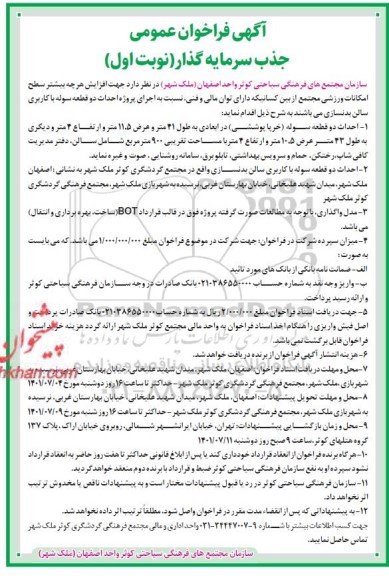 آگهی فراخوان عمومی
جذب سرمایه گذار (نوبت اول)
سازمان مجتمع های فرهنگی سیاحتی کوثر واحد اصفهان (ملک شهر) در نظر دارد جهت افزایش هرچه بیشتر سطح
امکانات ورزشی مجتمع از بین کسانیکه دارای توان مالی و فنی، نسبت به اجرای پروژه احداث دو قطعه سوله با کاربری
سالن بدنسازی می باشند به شرح ذیل اقدام نماید:
۱- احداث دو قطعه سوله (خرپا پوششی) در ابعادی به طول ۴۱ متر و عرض ۱۱.۵ متر و ارتفاع ۴ متر و دیگری
به طول ۴۳ متر عرض ۱۰.۵ متر و ارتفاع ۴ متر با مساحت تقریبی ۹۰۰ متر مربع شامل سالن، دفتر مدیریت
کافی شاپ، رختکن، حمام و سرویس بهداشتی، تابلو برق، سامانه روشنایی، صوت و غیره نماید.
۲- احداث دو قطعه سوله با کاربری سالن بدنسازی واقع در مجتمع گردشگری کوثر ملک شهر به نشانی: اصفهان
ملک شهر، میدان شهید علیخانی، خیابان بهارستان غربی، نرسیده به شهربازی ملک شهر، مجتمع فرهنگی گردشگری
کوثر ملک شهر
۳- مدل واگذاری، با توجه به مطالعات صورت گرفته پروژه فوق در قالب قرارداد BOT (ساخت، بهره برداری و انتقال)
می باشد.
۴- میزان سپرده شرکت در فراخوان: جهت شرکت در موضوع فراخوان مبلغ ۱/۰۰۰/۰۰۰/۰۰۰ می باشد. که می بایست
به صورت:
الف- ضمانت نامه بانکی از بانک های مورد تائید
ب- واریز وجه نقد به شماره حساب بانک صادرات در وجه سازمان فرهنگی سیاحتی کوثر
و ارائه رسید پرداخت.
۵- جهت دریافت اسناد فراخوان مبلغ ریال به شماره حساب بانک صادرات پرداخت و
اصل فیش واریزی را هنگام اخذ اسناد فراخوان به واحد مالی مجتمع کوثر ملک شهر ارائه گردد هزینه خرید اسناد
فراخوان قابل برگشت نمی باشد.
۶- هزینه انتشار آگهی فراخوان از برنده دریافت خواهد شد.
۷- محل و مهلت دریافت اسناد فراخوان: اصفهان، ملک شهر، میدان شهید علیخانی، خیابان بهارستان
شهربازی ملک شهر، مجتمع فرهنگی گردشگری کوثر ملک شهر - حداکثر تا ساعت ۱۶ روز دوشنبه مورخ ۱۴۰۱/۰۷/۰۴
۸- محل و مهلت تحویل پیشنهادات: اصفهان، ملک شهر، میدان شهید علیخانی، خیابان بهارستان غربی، نرسیده
به شهربازی ملک شهر، مجتمع فرهنگی گردشگری کوثر ملک شهر - حداکثر تا ساعت ۱۶ روز شنبه مورخ ۱۴۰۱/۰۷/۰۹
۹- محل و زمان بازگشایی پیشنهادات: تهران، خیابان ایرانشهر شمالی، روبروی خیابان اراک، پلاک ۱۳۷
گروه هتلهای کوثر، ساعت ۹ صبح روز دوشنبه ۱۴۰۱/۰۷/۱۱
۱۰- هرگاه برنده فراخوان از انعقاد قرارداد خودداری کند یا پس از ابلاغ قانونی حداکثر تا هفت روز حاضر به انعقاد قرارداد
نشود سپرده او به نفع سازمان فرهنگی سیاحتی کوثر ضبط و قرارداد با برنده دوم منعقد خواهد گردید.
۱۱- سازمان فرهنگی سیاحتی کوثر در رد یا قبول پیشنهادات مختار است و به پیشنهادات ناقص یا مخدوش ترتیب
اثر نخواهد داد.
۱۲- به پیشنهاداتی که پس از انقضاء مدت مقرر در فراخوان واصل شود، مطلقاً ترتیب اثر داده نخواهد شد.
جهت کسب اطلاعات بیشتر با شماره ۹-۳۴۴۴۷۰۰۷-۰۳۱ واحد اداری و مالی مجتمع فرهنگی گردشگری کوثر ملک شهر
تماس حاصل نمایید.
سازمان مجتمع های فرهنگی سیاحتی کوثر واحد اصفهان (ملک شهر)